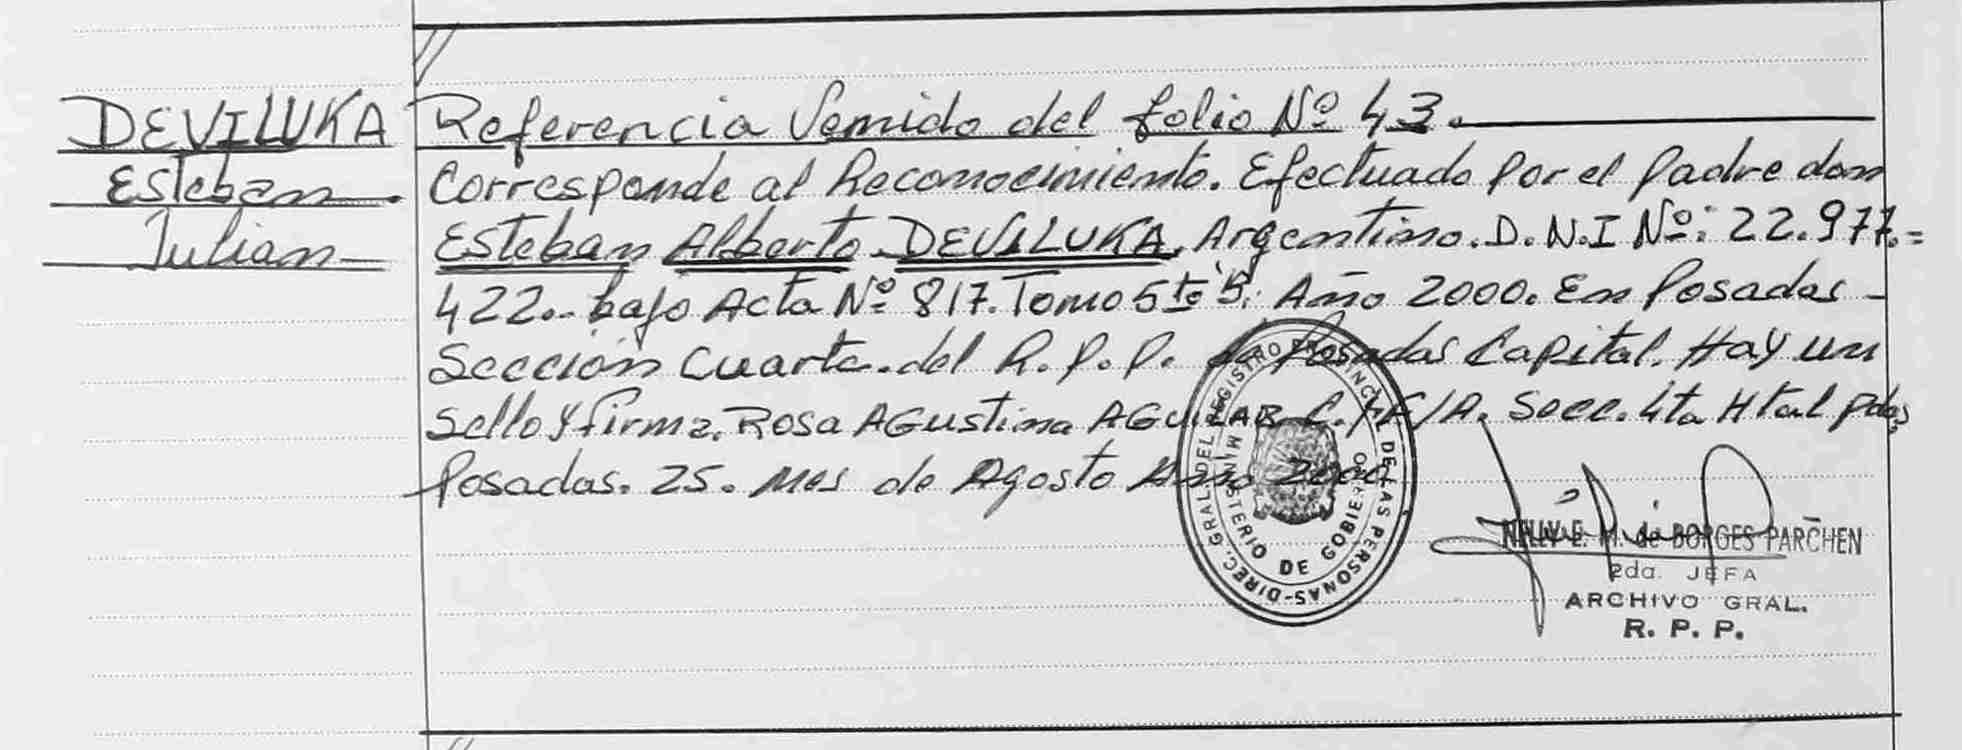 DEVILUKA
Esteban.
Julian
//
Referencia Venido del folio Nº 43.
Corresponde al Reconocimiento. Efectuado Por el Padre don
Esteban Alberto DEVILUKA, Argentino. D.N.I Nº: 22.977.=
422.- bajo Acta Nº 817. Tomo 5to B. Año 2000. En Posadas -
Sección Cuarta. del R.P.P. de Posadas Capital. Hay un
Sello y firma. Rosa Agustina AGUILAR Secc. 4ta Htal Pdas
Posadas. 25. Mes de Agosto Año 2000
DIREC. GRAL. DEL REGISTRO PROVINCIAL DE LAS PERSONAS
MINISTERIO DE GOBIERNO
NELLY E. M. de BORGES PARCHEN
2da. JEFA
ARCHIVO GRAL.
R. P. P.